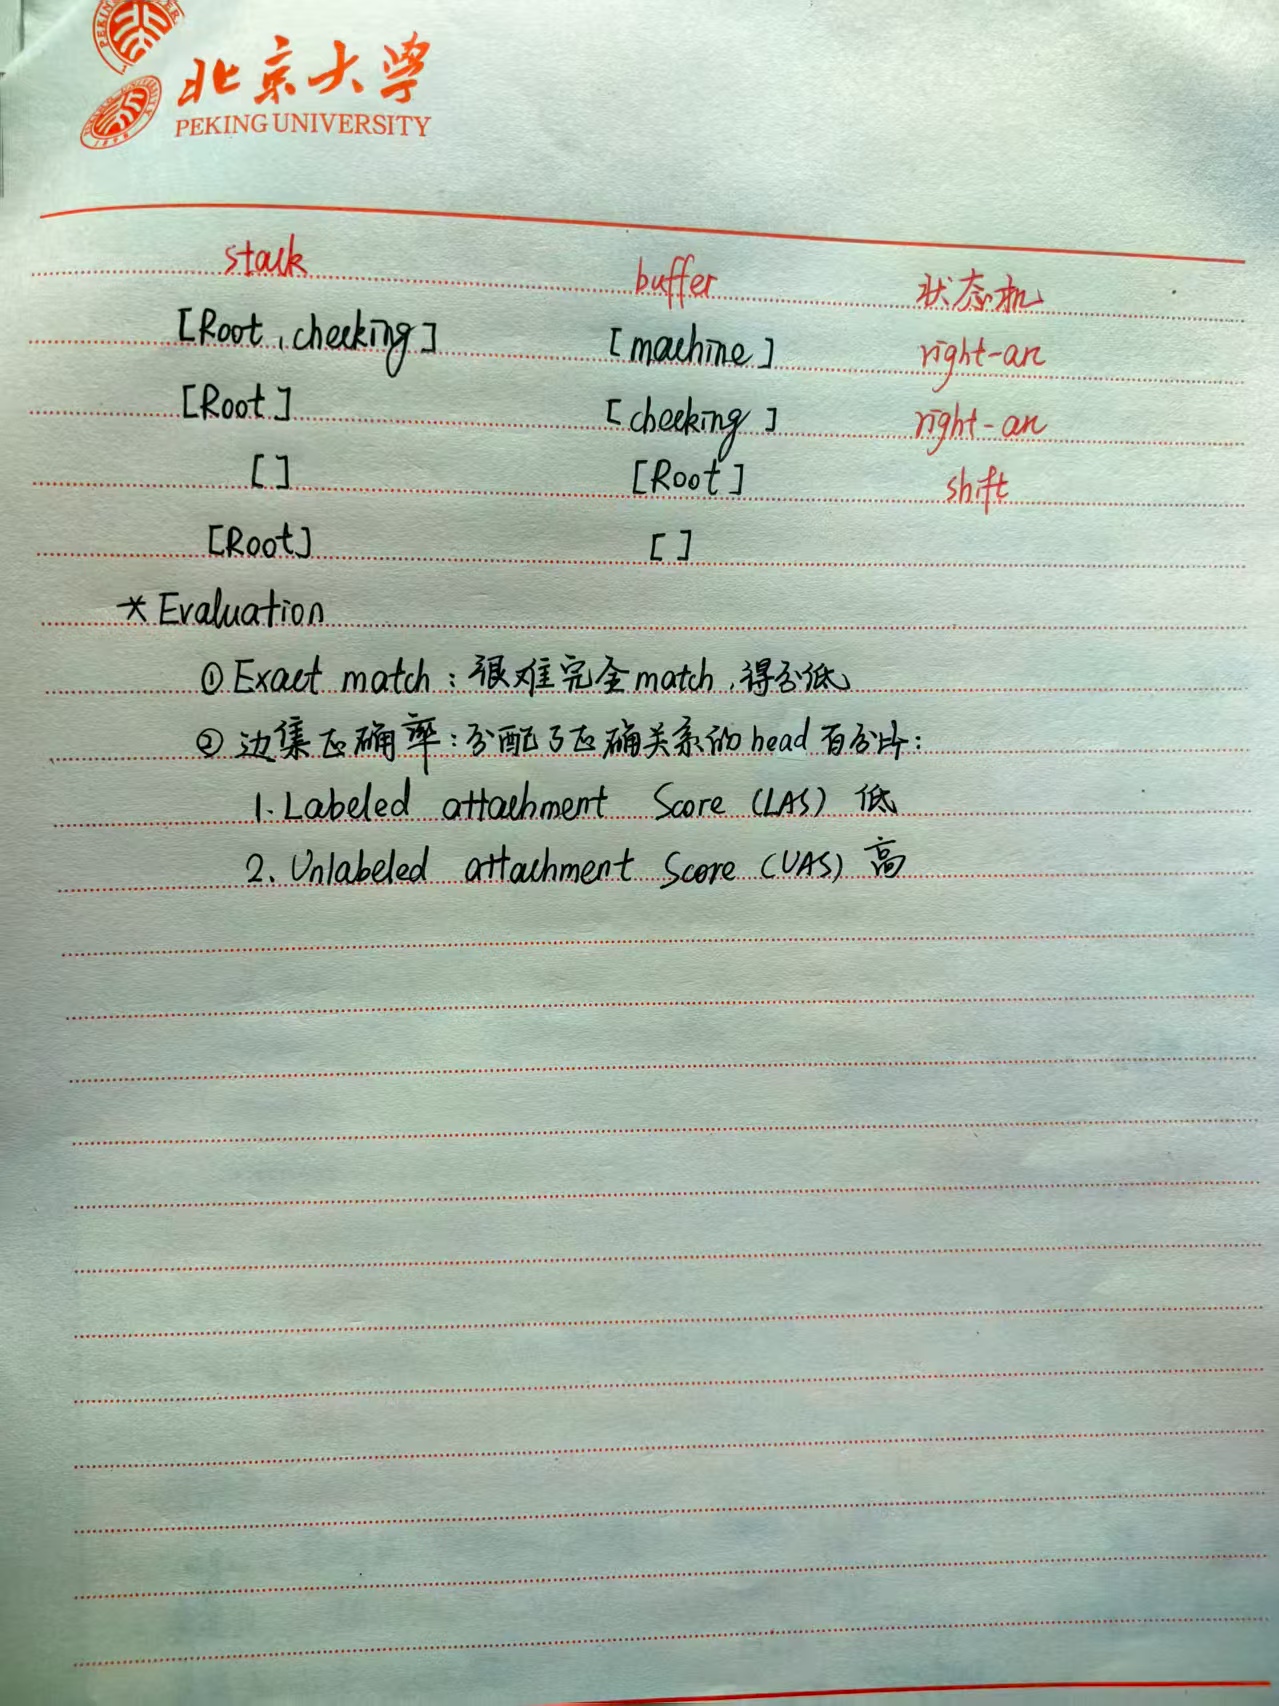 北京大学
PEKING UNIVERSITY
stack buffer 状态机
[Root, checking] [machine] right-arc
[Root] [checking] right-arc
[] [Root] shift
[Root] []
* Evaluation
① Exact match: 很难完全match, 得分低
② 边集正确率: 分配了正确关系的head百分比:
1. Labeled attachment Score (LAS) 低
2. Unlabeled attachment Score (UAS) 高